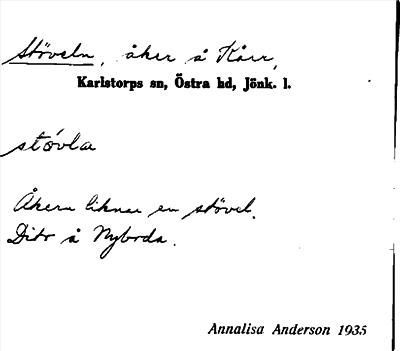 Stöveln, åker å Kårr,
Karlstorps sn, Östra hd, Jönk. l.
stövla
Åkern liknar en stövel.
Dito å Nyboda.
Annalisa Anderson 1935